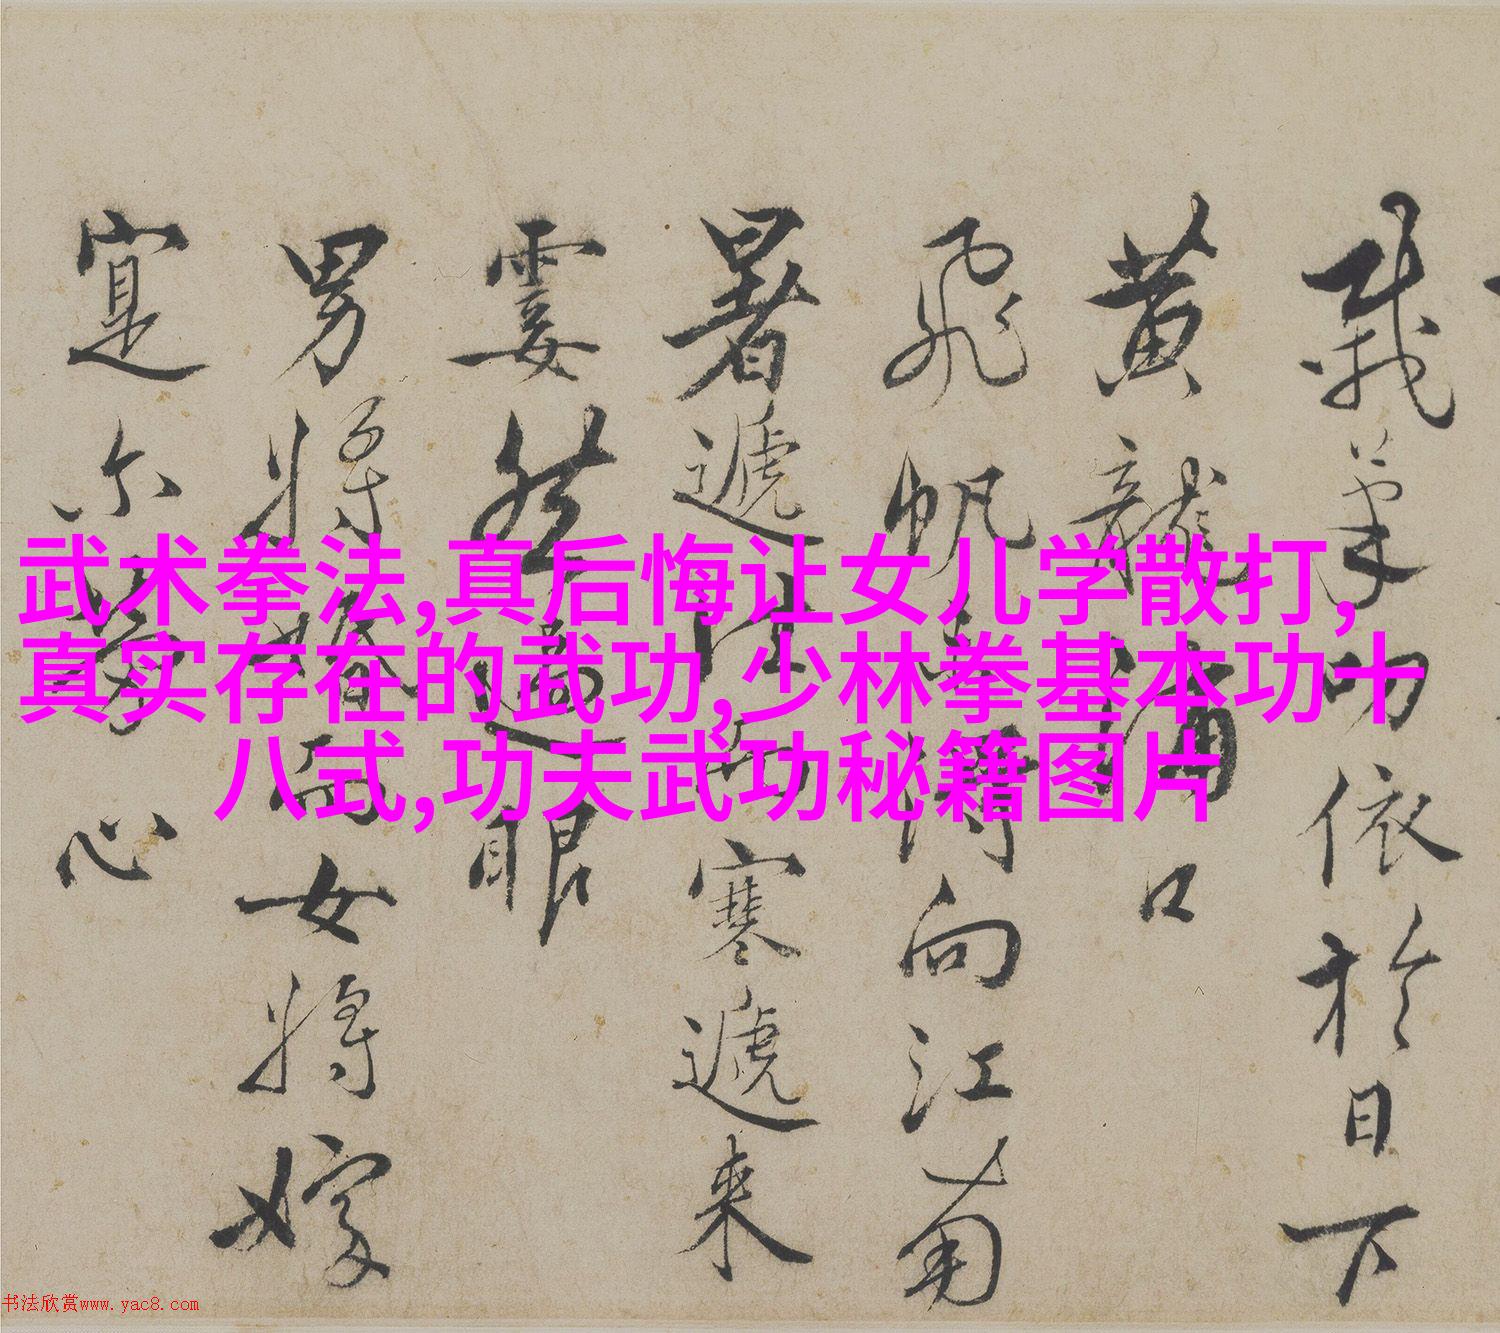 武术拳法,真后悔让女儿学散打,
真实存在的武功,少林拳基本功十
八式,功夫武功秘籍图片
黄龍浦口
飛帆 向江南
暑遞 寒遞來
霎然過眼
男將婚而女將嫁
寔尔勞心
依於日下
书法欣赏www.yac8.com